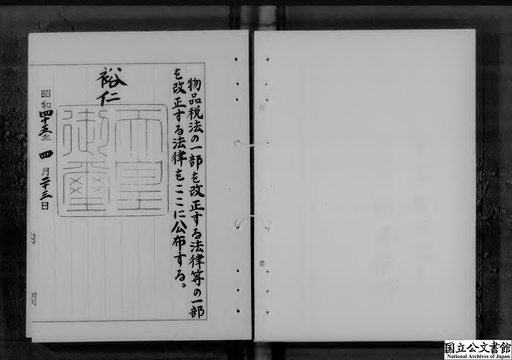 物品税法の一部を改正する法律等の一部
を改正する法律をここに公布する。
裕仁
昭和四十五年四月二十三日
天皇
御璽
国立公文書館
National Archives of Japan